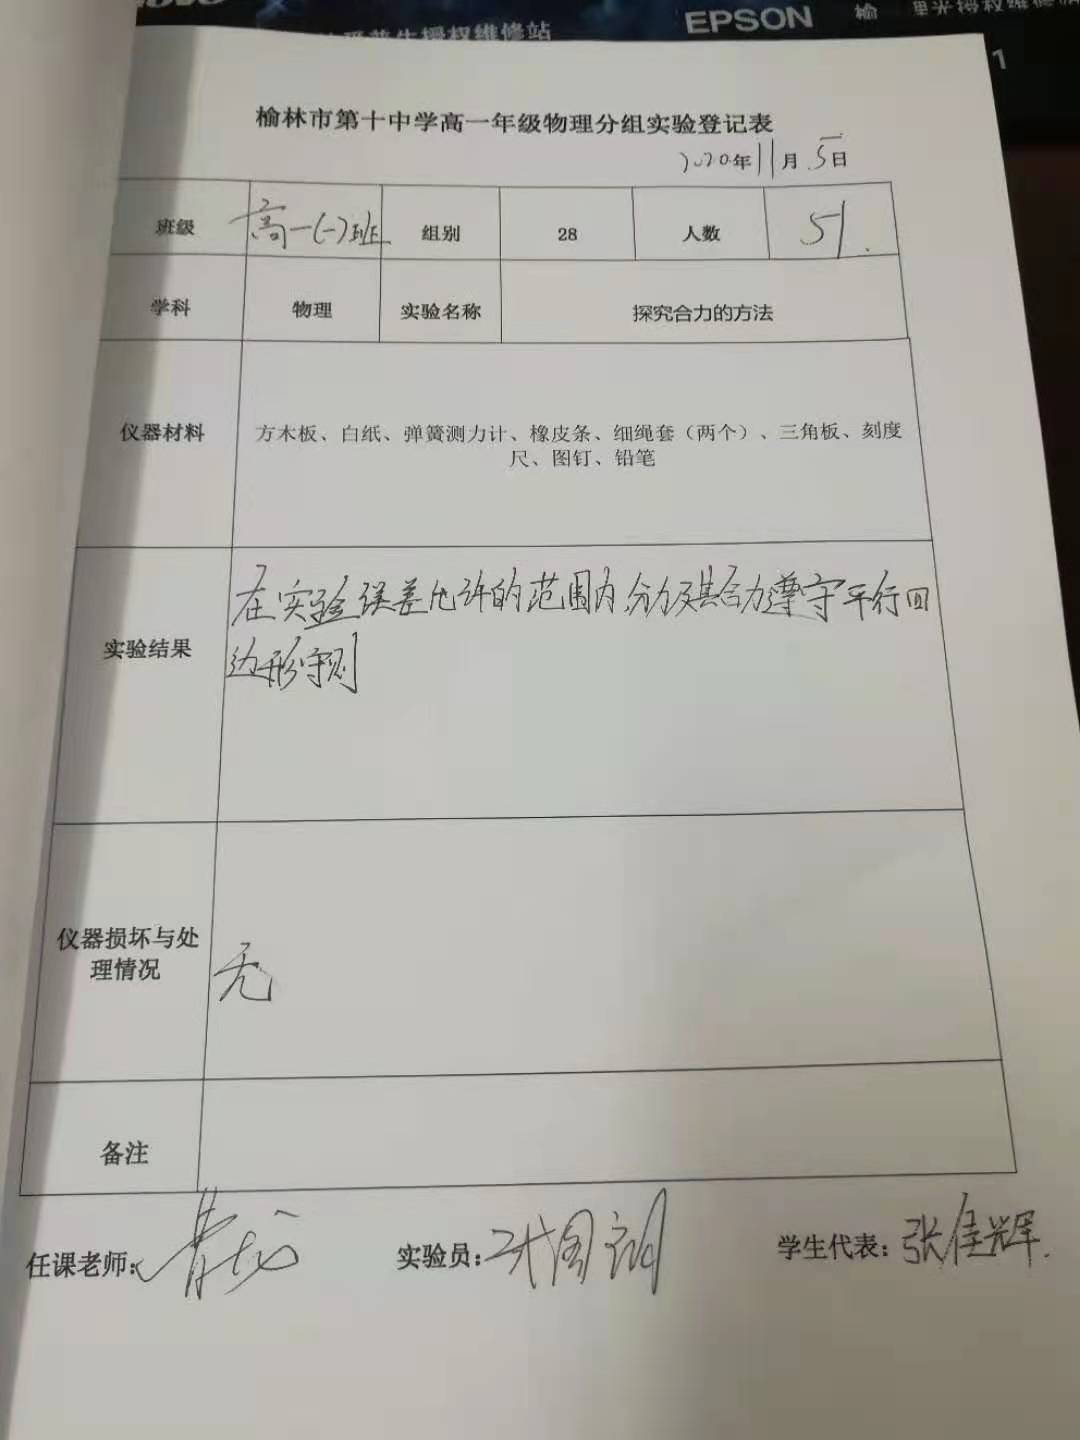 EPSON 榆
授权维修站
1
榆林市第十中学高一年级物理分组实验登记表
2020年11月5日
班级 高一(一)班 组别 28 人数 51.
学科 物理 实验名称 探究合力的方法
仪器材料 方木板、白纸、弹簧测力计、橡皮条、细绳套（两个）、三角板、刻度
尺、图钉、铅笔
实验结果 在实验误差允许的范围内,分力及其合力遵守平行四
边形守则
仪器损坏与处
理情况 无
备注
任课老师: 实验员: 学生代表: 张佳辉.